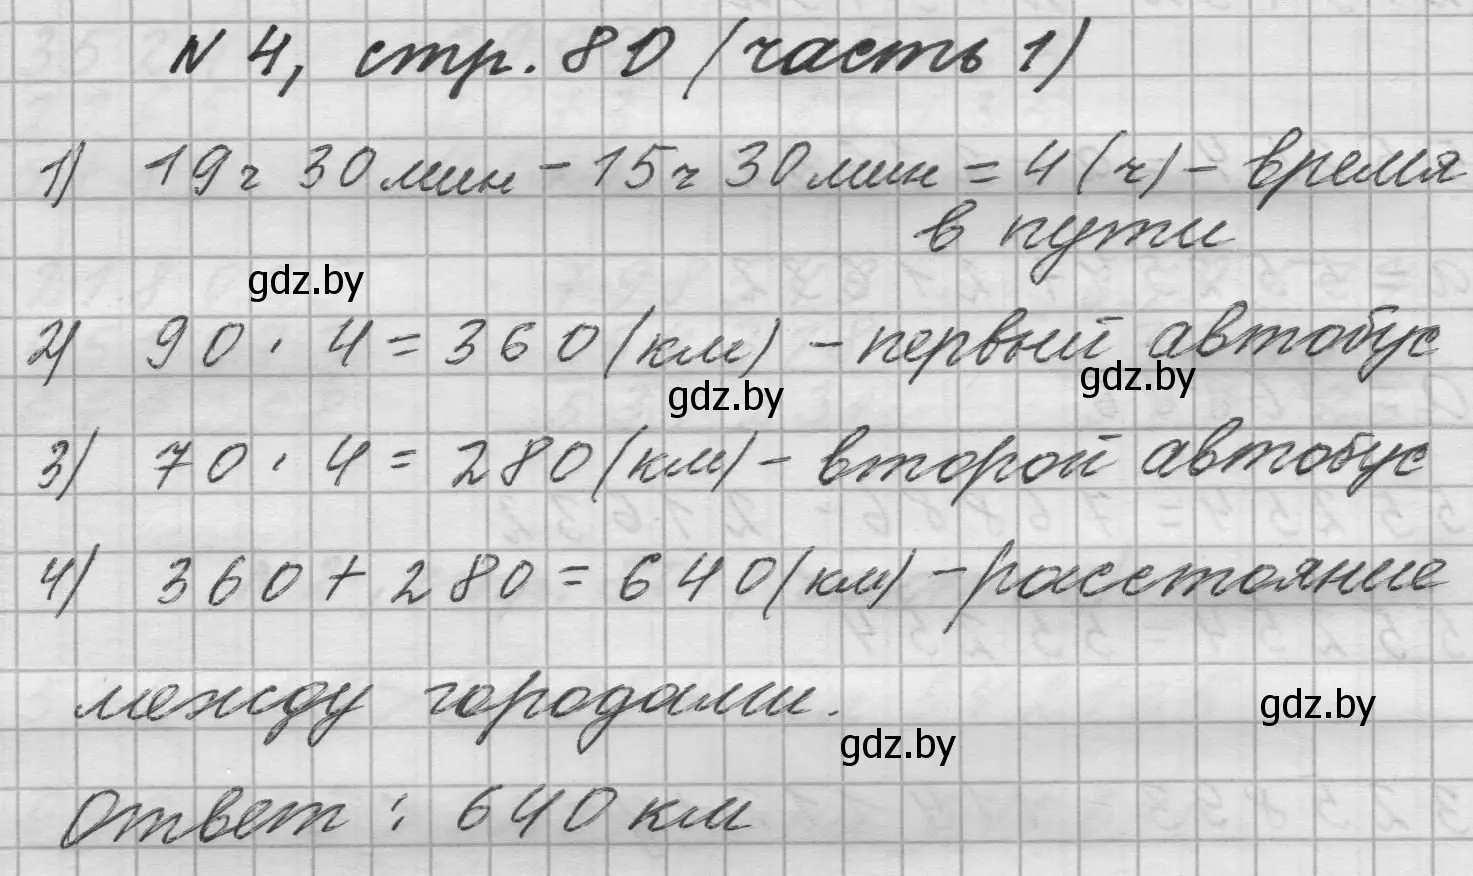 N 4, стр. 80 (часть 1)
1) 19ч 30 мин - 15ч 30 мин = 4 (ч) - время
в пути
gdz.by
2) 90 · 4 = 360 (км) - первый автобус
gdz.by
gdz.by
3) 70 · 4 = 280 (км) - второй автобус
4) 360 + 280 = 640 (км) - расстояние
между городами.
gdz.by
gdz.by
Ответ : 640 км